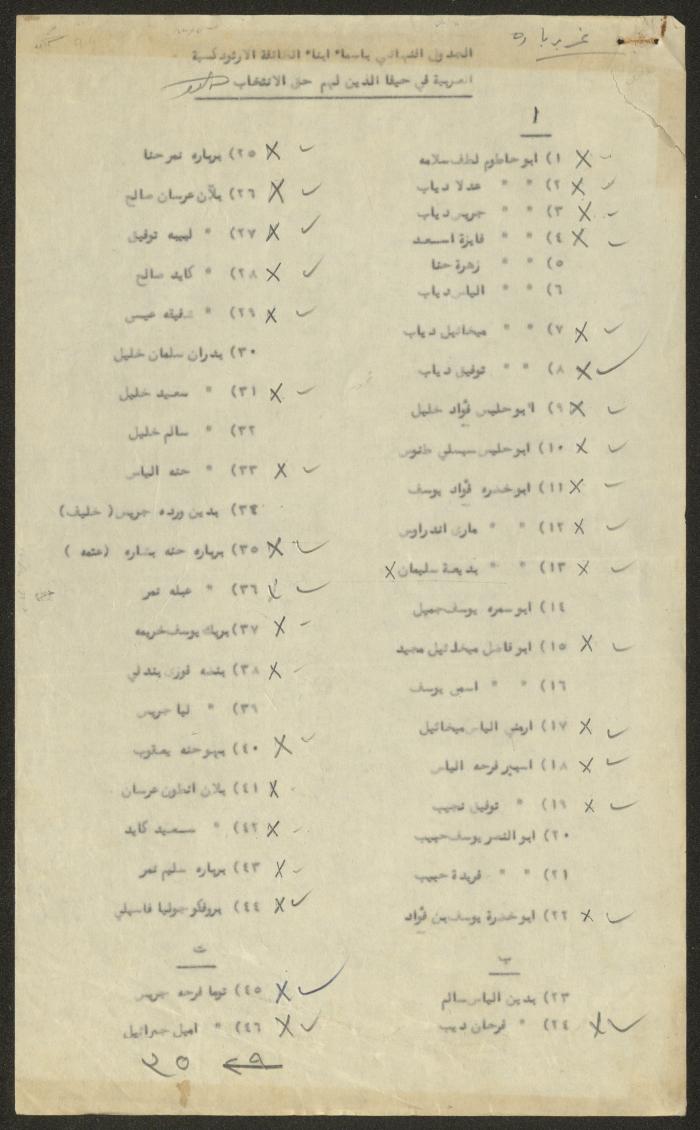 الجدول النهائي باسماء ابناء الطائفة الارثوذكسية
العربية في حيفا الذين لهم حق الانتخاب
ا
١) ابو حاطوم لطف سلامه
٢) " " عدلا دياب
٣) " " جريس دياب
٤) " " فايزة اسعد
٥) " " زهرة حنا
٦) " " الياس دياب
٧) " " ميخائيل دياب
٨) " " توفيق دياب
٩) ابو حليس فؤاد خليل
١٠) ابو حليس سيسلي طنوس
١١) ابو خضره فؤاد يوسف
١٢) " " ماري اندراوس
١٣) " " بديعة سليمان
١٤) ابو سمره يوسف جميل
١٥) ابو فاضل ميخائيل مجيد
١٦) " " اسمى يوسف
١٧) ارملي الياس ميخائيل
١٨) اسبير فرحه الياس
١٩) " توفيق نجيب
٢٠) ابو النصر يوسف حبيب
٢١) " " فريدة حبيب
٢٢) ابو خضرة يوسف بن فؤاد
ب
٢٣) بدين الياس سالم
٢٤) " فرحان ديب
٢٥) بهاره نمر حنا
٢٦) بلان عرسان صالح
٢٧) " لبيبه توفيق
٢٨) " كايد صالح
٢٩) " شفيقه عيسى
٣٠) بدران سلمان خليل
٣١) " سعيد خليل
٣٢) " سالم خليل
٣٣) " حنه الياس
٣٤) بدين ورده جريس (خليف)
٣٥) بهاره حنه بشاره
٣٦) " عبله نمر
٣٧) بريك يوسف خريمه
٣٨) بنضه فوزي بندلي
٣٩) " ليا جريس
٤٠) حنه يعقوب
٤١) بلان انطون عرسان
٤٢) " سعيد كايد
٤٣) بهاره سليم نمر
٤٤) بروفكو جوليا فاسيلي
ت
٤٥) توما فرحه جريس
٤٦) " اميل جبرائيل
٢٩